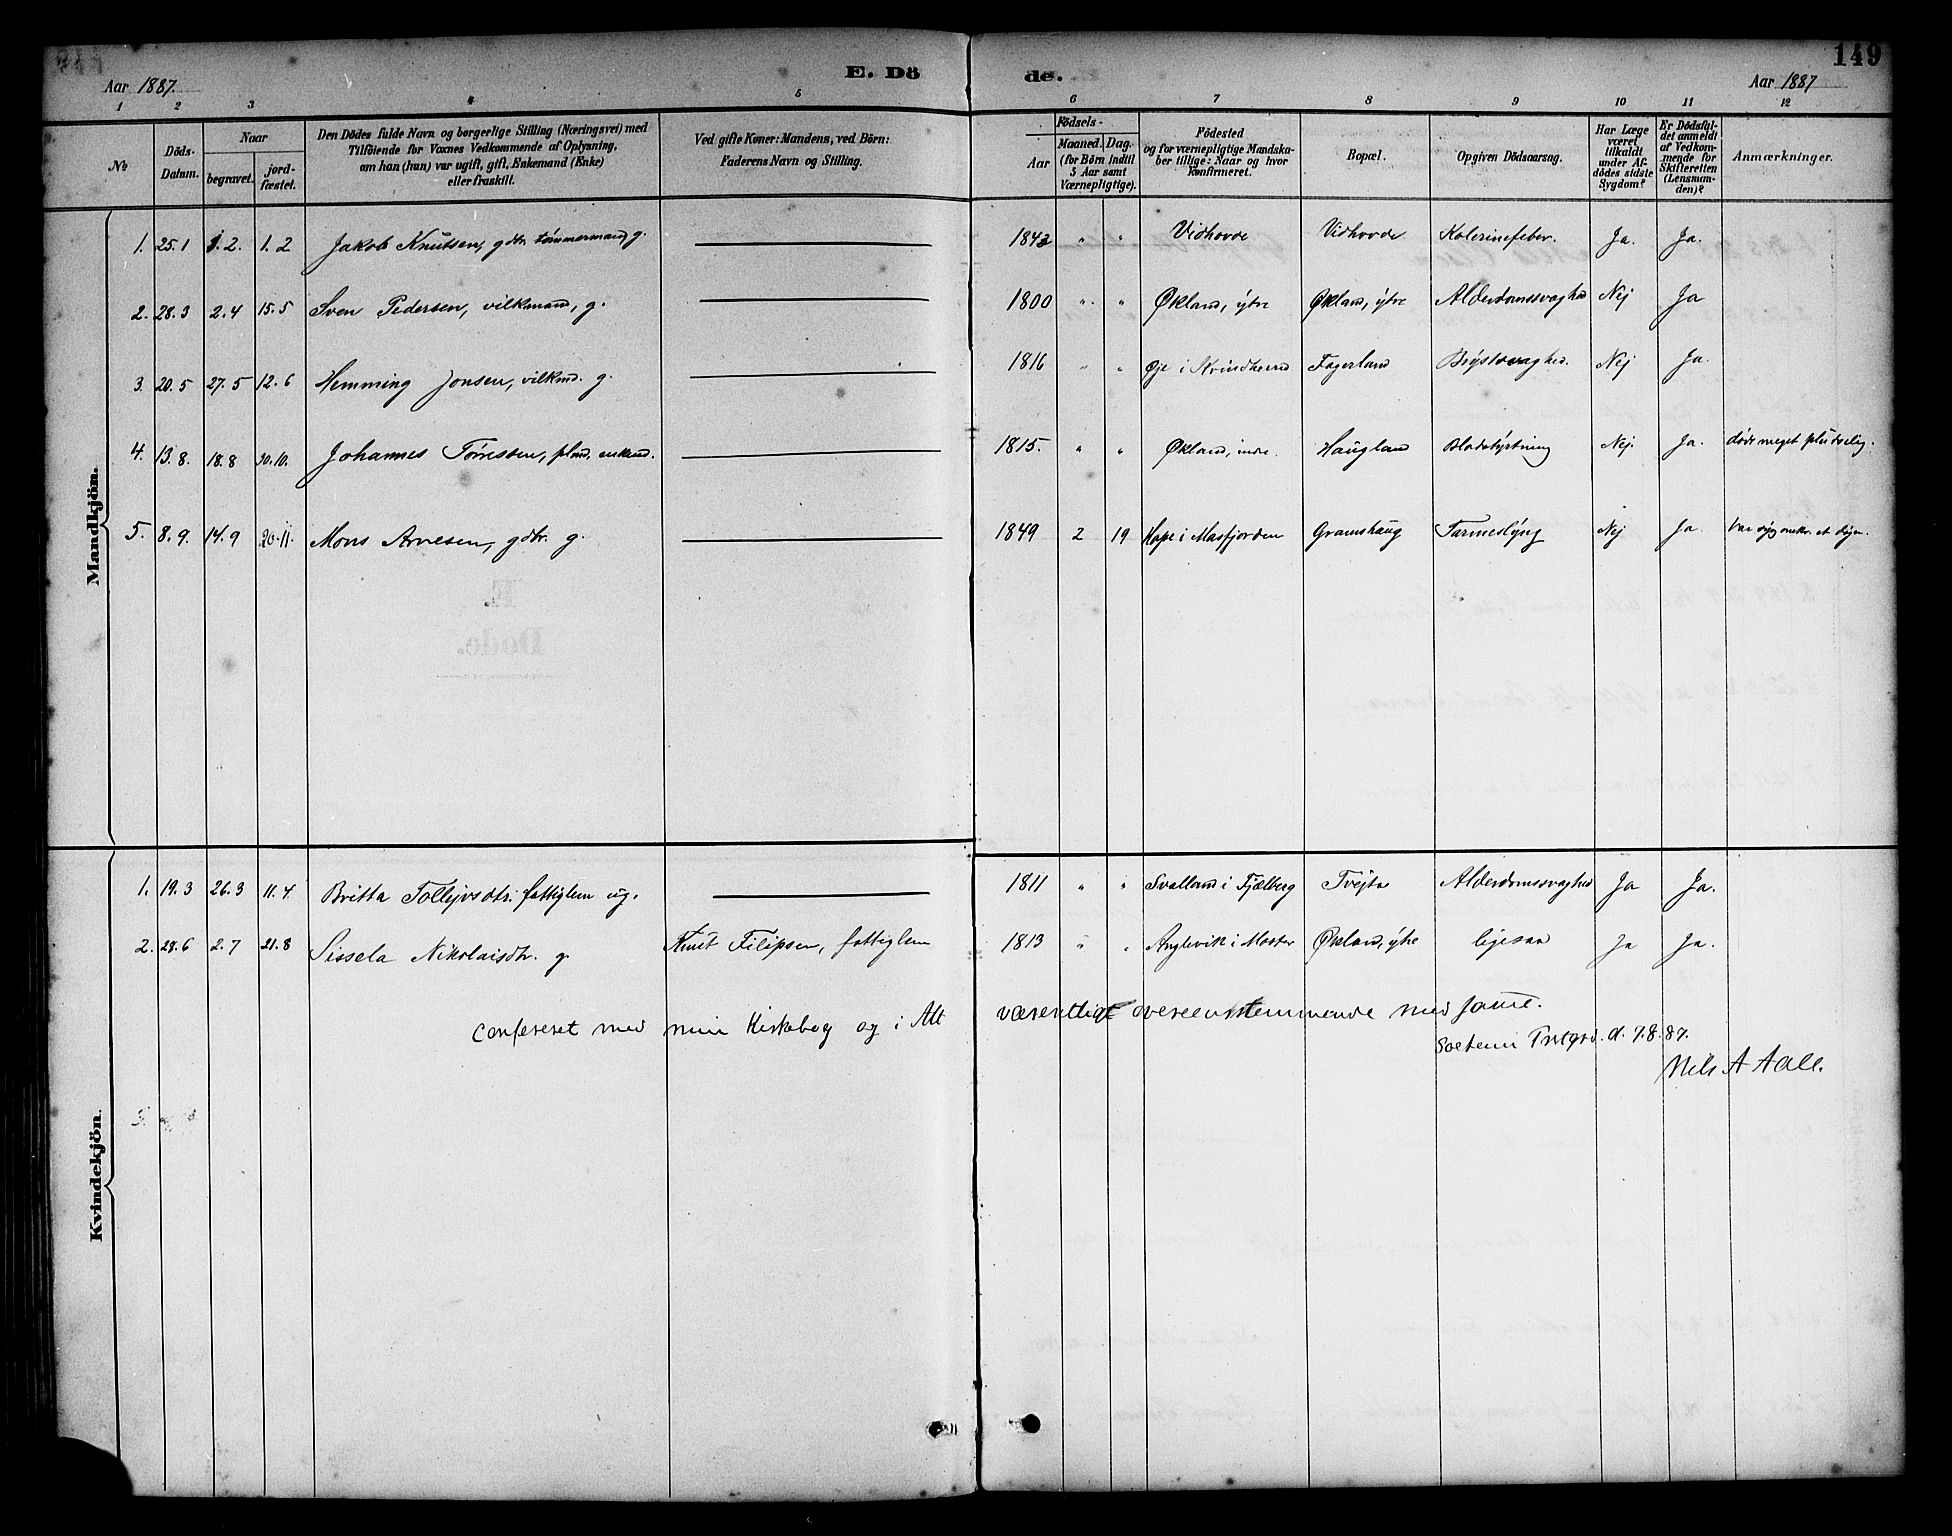 149
E. Dö de.
Aar 1887. Aar 1887
1 2 3 4 5 6 7 8 9 10 11 12
No
Döds-Datum.
Naar begravet. jordfæstet.
Den Dödes fulde Navn og borgerlige Stilling (Næringsvei) med
Tilföiende for Voxnes Vedkommende af Oplysning,
om han (hun) var ugift, gift, Enkemand (Enke)
eller fraskilt.
Ved gifte Koner: Mandens, ved Börn:
Faderens Navn og Stilling.
Födsels-
Aar Maaned. Dag.
(for Börn indtil
5 Aar samt
Værnepligtige).
Födested
og for værnepligtige Mandska-
ber tillige: Naar og hvor
konfirmeret.
Bopæl.
Opgiven Dödsaarsag.
Har Læge
været
tilkaldt
under Af-
dödes sidste
Sygdom?
Er Dödsfal-
det anmeldt
af Vedkom-
mende for
Skifteretten
(Lensman-
den)?
Anmærkninger.
Mandkjön.
1. 25.1 1.2. 1.2 Jakob Knutsen, gdbr. tømmermand g. 1843 " " Vidhovde Vidhovde Kolerinefeber. Ja. Ja.
2. 28.3 2.4 15.5 Sven Pedersen, vilkmand, g. 1800 " " Økland, ytre Økland, ytre Alderdomssvaghed Nej Ja
3. 20.5 27.5 12.6 Hemming Jonsen, vilkmd. g. 1816 " " Øje i Kvindherred Fagerland Brystsvaghed. Nej Ja.
4. 13.8. 18.8 30.10. Johannes Tørresen, plmd. enkmd. 1815. " " Økland, indre. Haugland Blodstyrtning Nej. Ja. døde meget pludselig.
5. 8.9. 14.9 20.11. Mons Arnesen, gdbr. g. 1849 2 19 Hope i Masfjorden Gramshaug Tarmeslyng Nej Ja. Var syg omkr. et døgn.
Kvindekjön.
1. 19.3 26.3 11.4 Britta Tollejvsdtr. fattiglem ug. 1811 " " Svalland i Fjælberg Tvejta Alderdomssvaghed Ja Ja.
2. 28.6 2.7 21.8 Sissela Nikolaisdtr. g. Knut Filipsen, fattiglem 1813 " " Anglevik i Moster Økland, ytre ligesaa Ja Ja.
confereret med min Kirkebog og i Alt væsentligt overeenstemmende med samme.
Prstgrd. d. 7.8.87.
Nils A Aall.